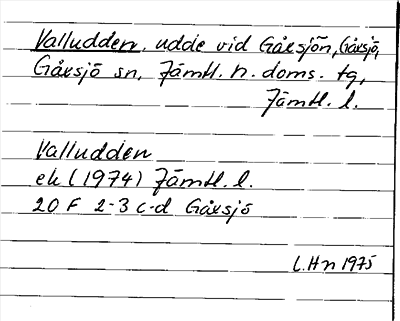 Valludden, udde vid Gåxsjön, Gåxsjö,
Gåxsjö sn, Jämtl. n. doms. tg,
Jämtl. l.
Valludden
ek (1974) Jämtl. l.
20 F 2-3 c-d Gåxsjö
L.Hn 1975